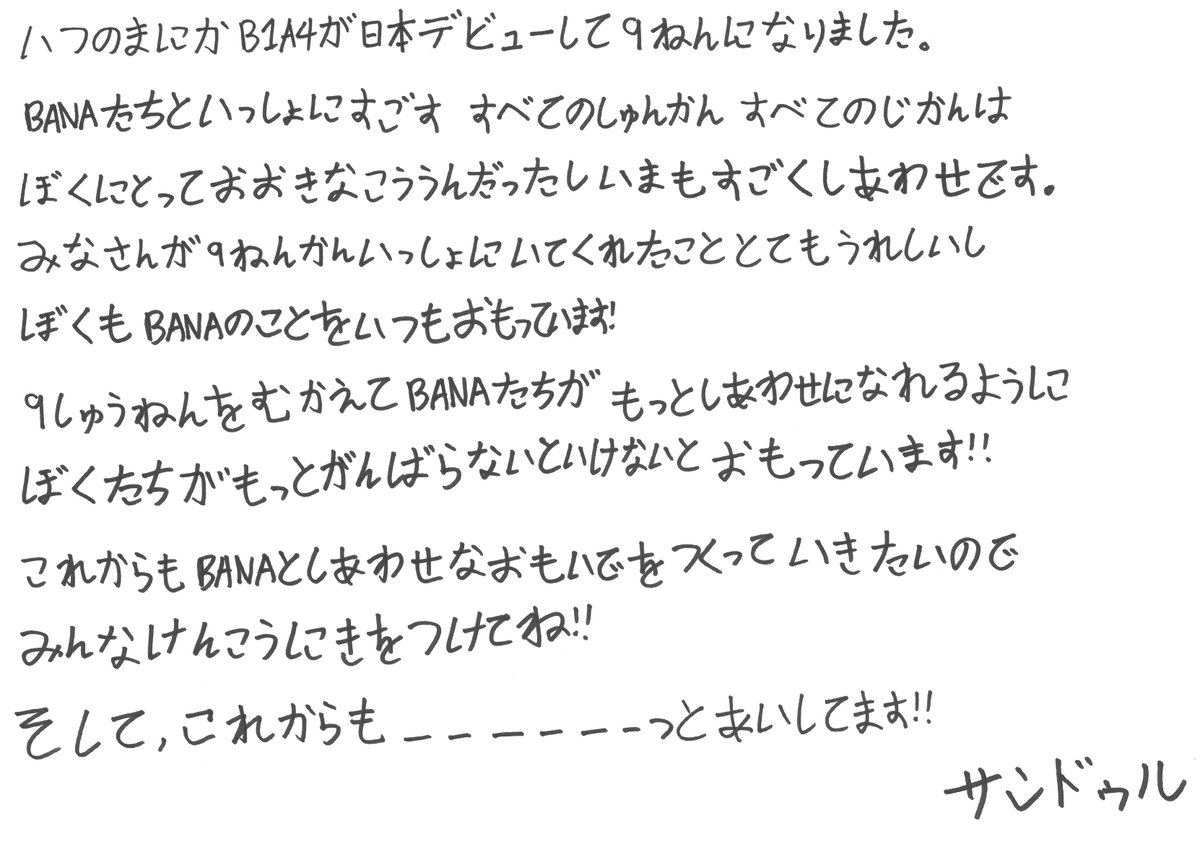 いつのまにかB1A4が日本デビューして9ねんになりました。
BANAたちといっしょにすごす すべてのしゅんかん すべてのじかんは
ぼくにとっておおきなこううんだったしいまもすごくしあわせです。
みなさんが9ねんかんいっしょにいてくれたこととてもうれしいし
ぼくもBANAのことをいつもおもっています!
9しゅうねんをむかえてBANAたちが もっとしあわせになれるように
ぼくたちがもっとがんばらないといけないと おもっています!!
これからもBANAとしあわせなおもいでをつくって いきたいので
みんなけんこうにきをつけてね!!
そして,これからも------っとあいしてます!!
サンドゥル